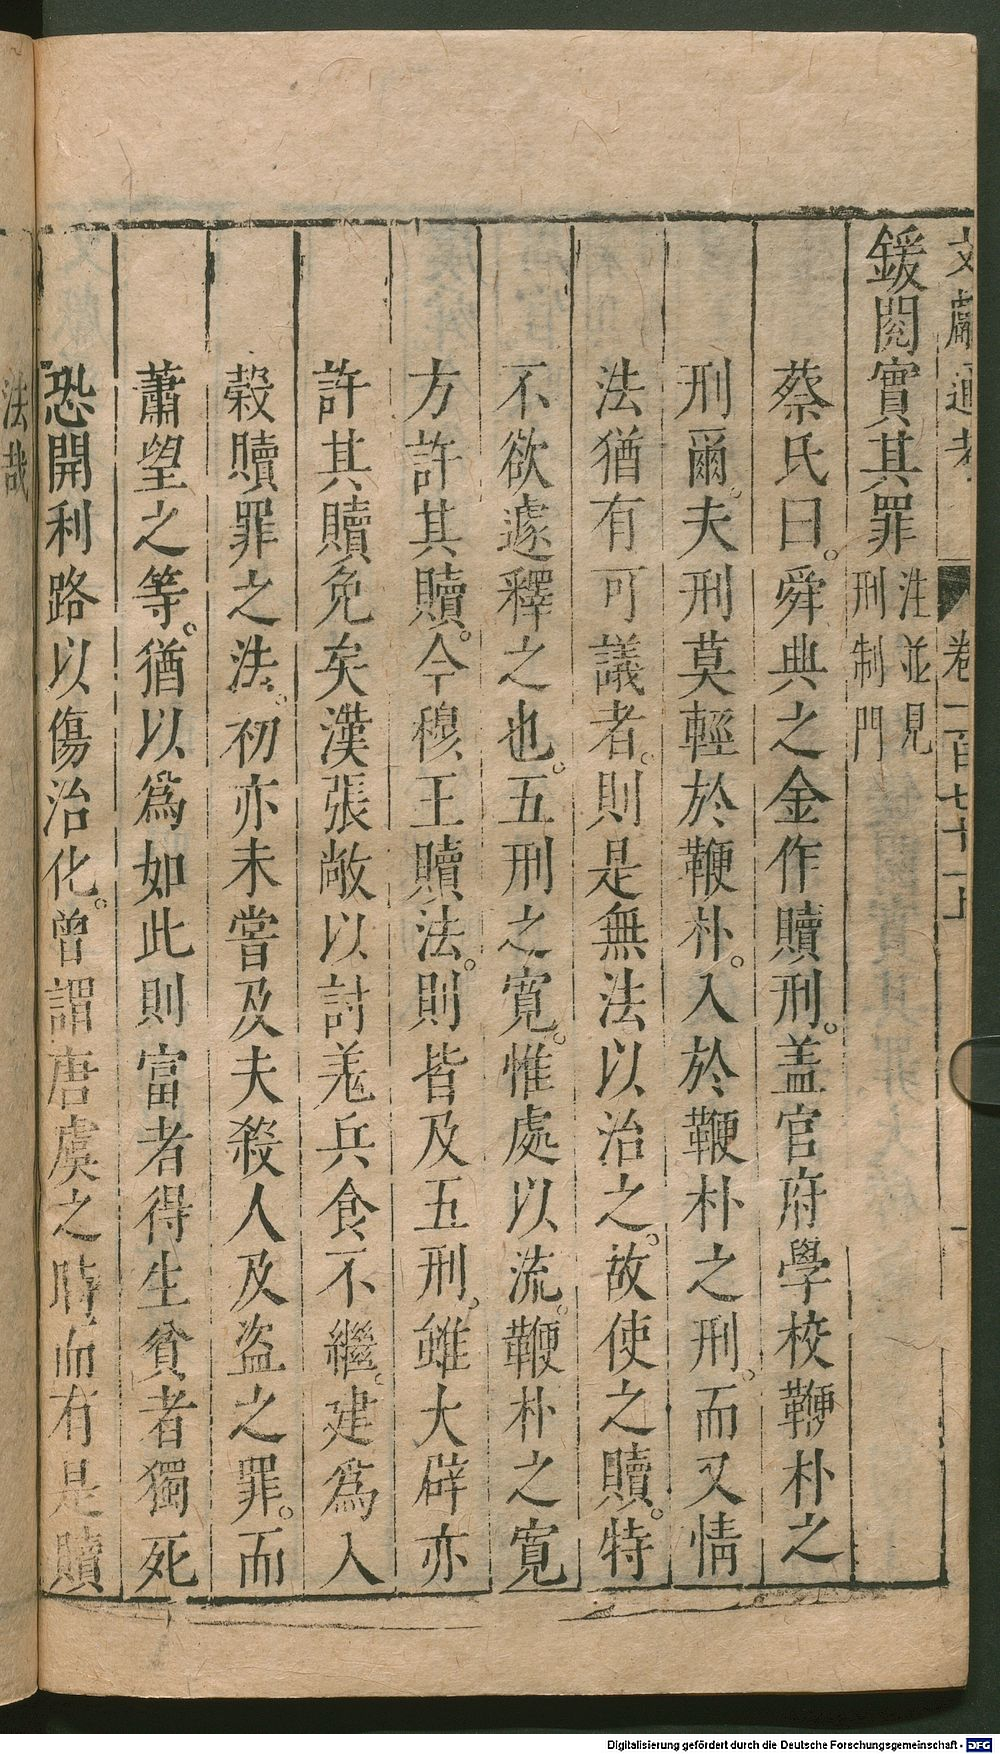 文獻通考 卷一百七十一上 一
鍰閱實其罪 注並見刑制門
蔡氏曰。舜典之金作贖刑。盖官府學校鞭朴之
刑爾。夫刑莫輕於鞭朴。入於鞭朴之刑。而又情
法猶有可議者。則是無法以治之。故使之贖。特
不欲遽釋之也。五刑之寬。惟處以流。鞭朴之寬
方許其贖。今穆王贖法。則皆及五刑。雖大辟亦
許其贖免矣漢張敞以討羗兵食不繼。建爲入
穀贖罪之法。初亦未嘗及夫殺人及盗之罪。而
蕭望之等。猶以爲如此則富者得生貧者獨死
恐開利路以傷治化。曾謂唐虞之時而有是贖
法哉
Digitalisierung gefördert durch die Deutsche Forschungsgemeinschaft - DFG